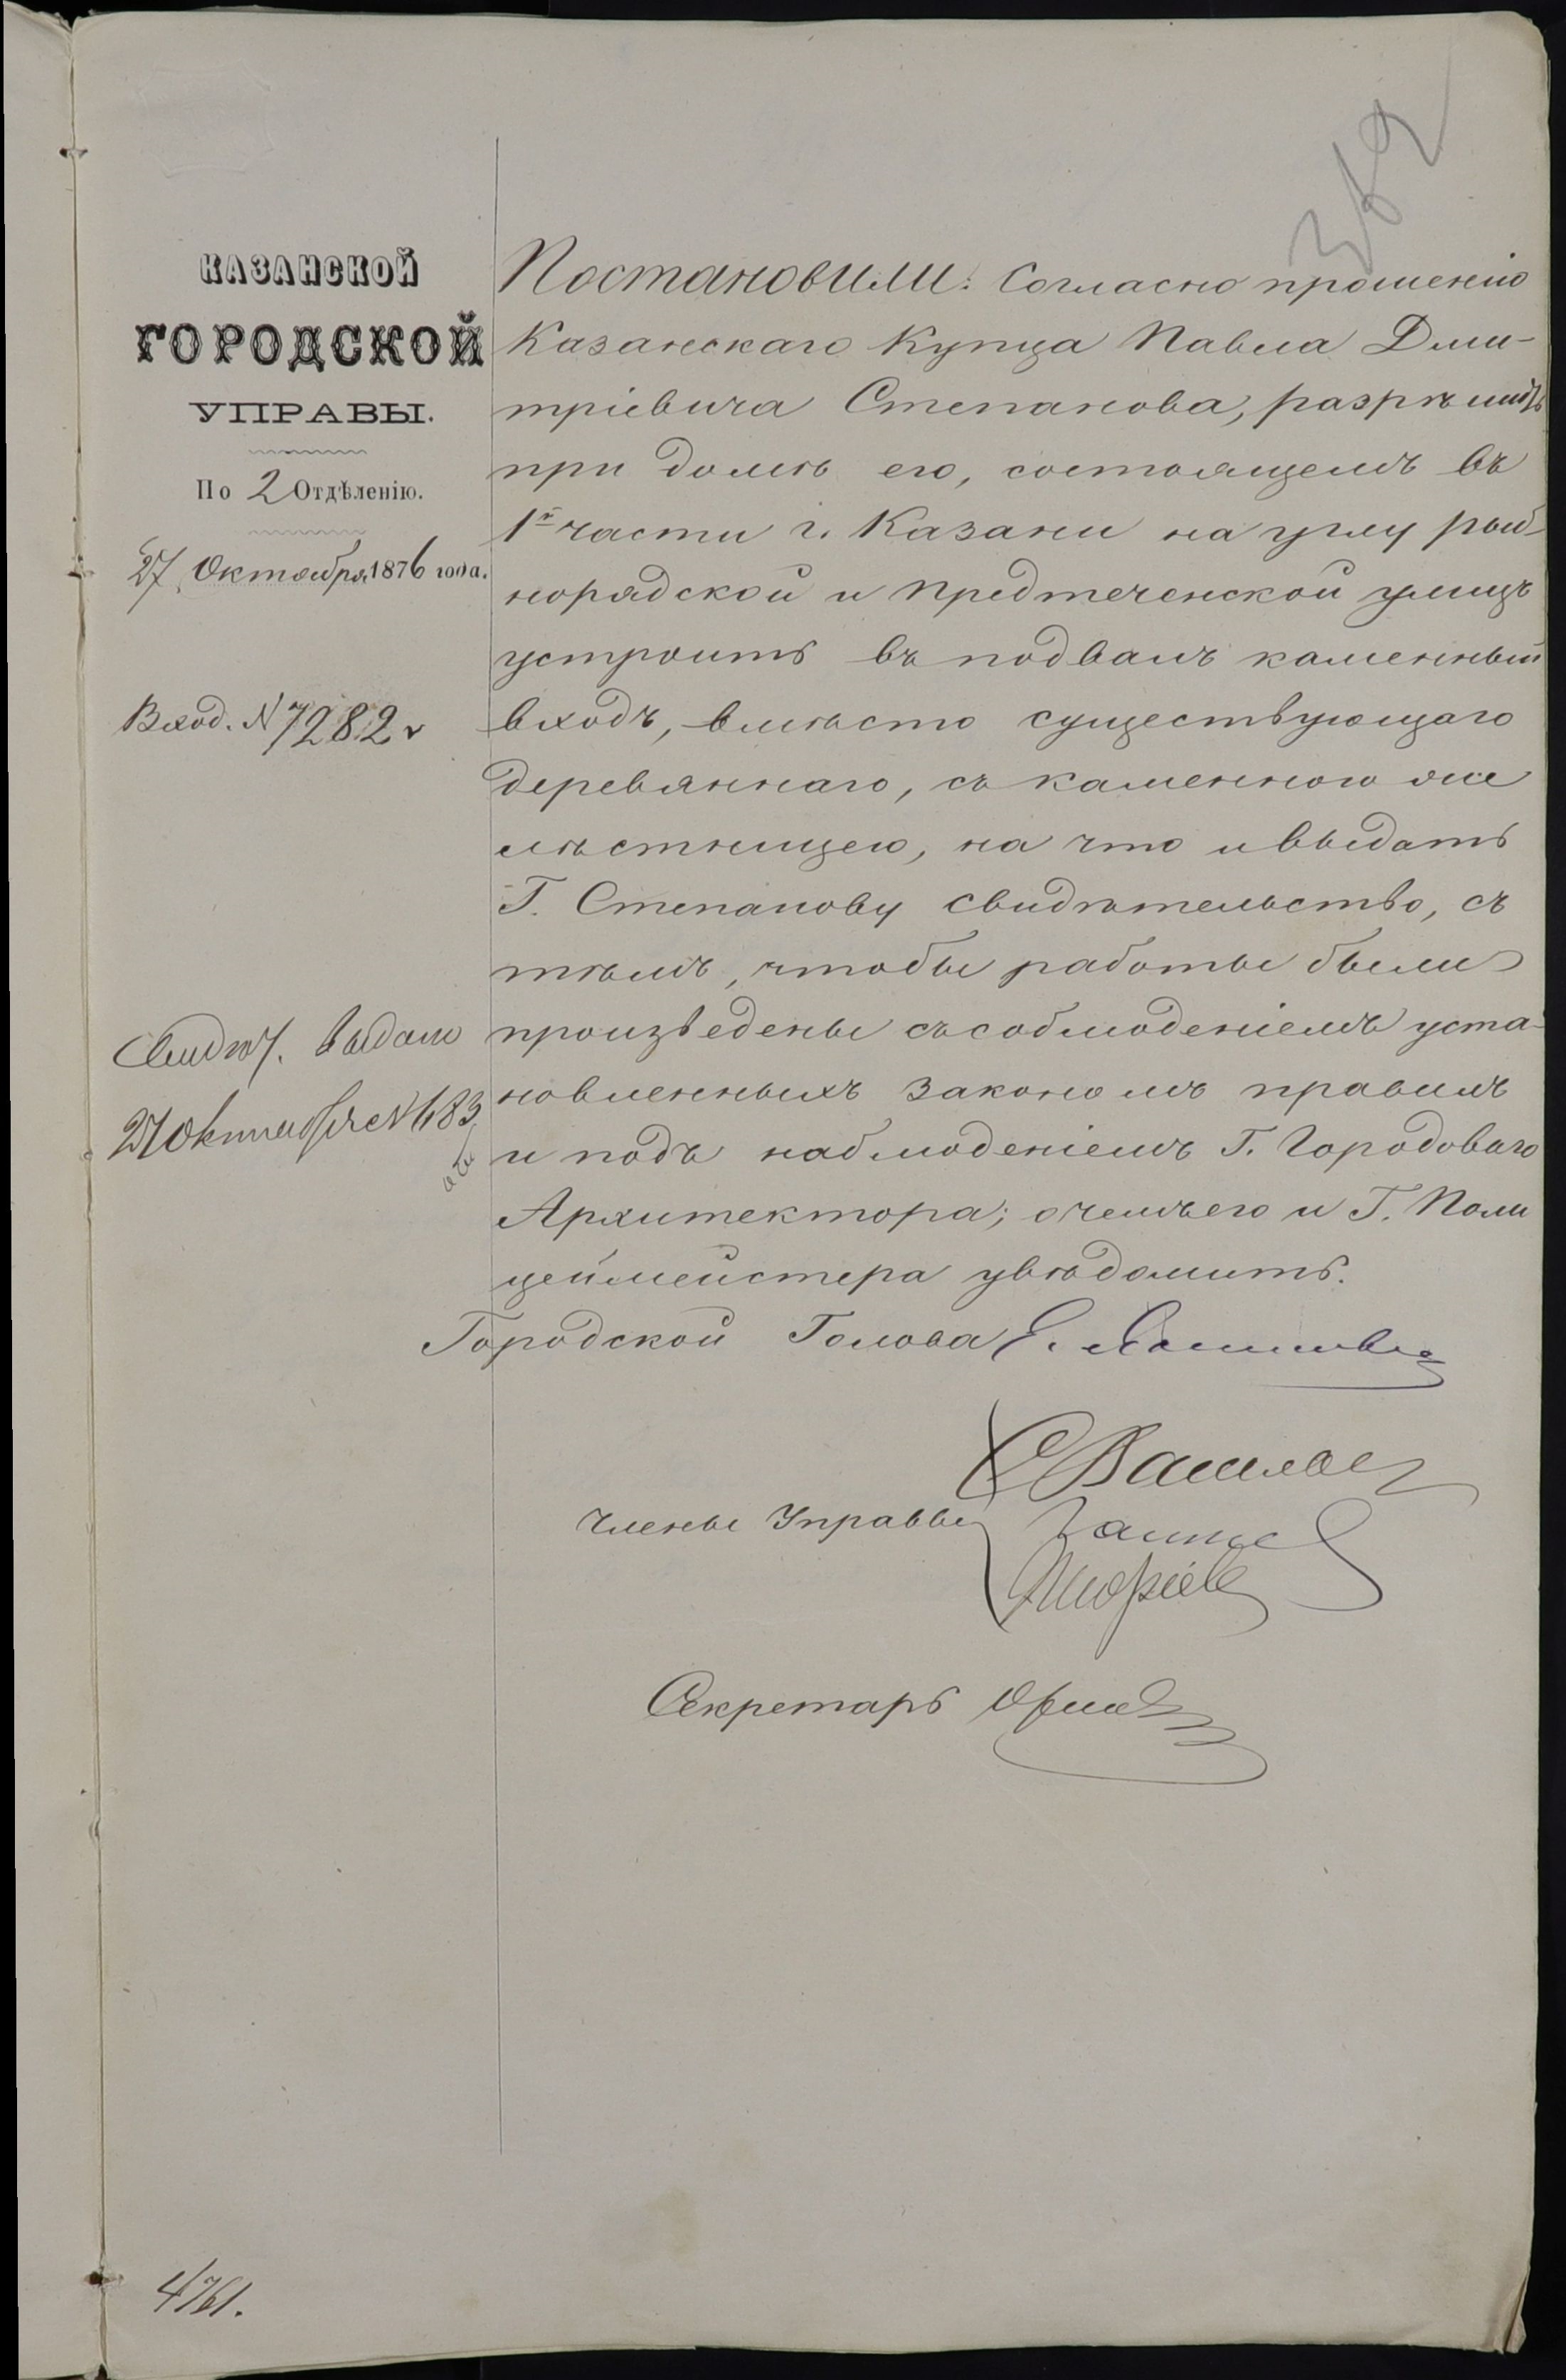 382
КАЗАНСКОЙ
ГОРОДСКОЙ
УПРАВЫ.
По 2 Отдѣленію.
27 Октября 1876 года.
Вход. N 7282
Свидѣт. выдано
27 Октября N 483
4761.
Постановили: Согласно прошенію
Казанскаго Купца Павла Дми-
тріевича Степанова, разрѣшить
при домѣ его, состоящемъ въ
1й части г. Казани на углу рыб-
норядской и предтеченской улицъ
устроить въ подвалъ каменный
входъ, вмѣсто существующаго
деревяннаго, съ каменною же
лѣстницею, на что и выдать
Г. Степанову свидѣтельство, съ
тѣмъ, чтобы работы были
произведены съ соблюденіемъ уста-
новленныхъ закономъ правилъ
и подъ наблюденіемъ Г. Городоваго
Архитектора; о чемъ его и Г. Поли
цеймейстера увѣдомить.
Городской Голова
Члены Управы
Секретарь